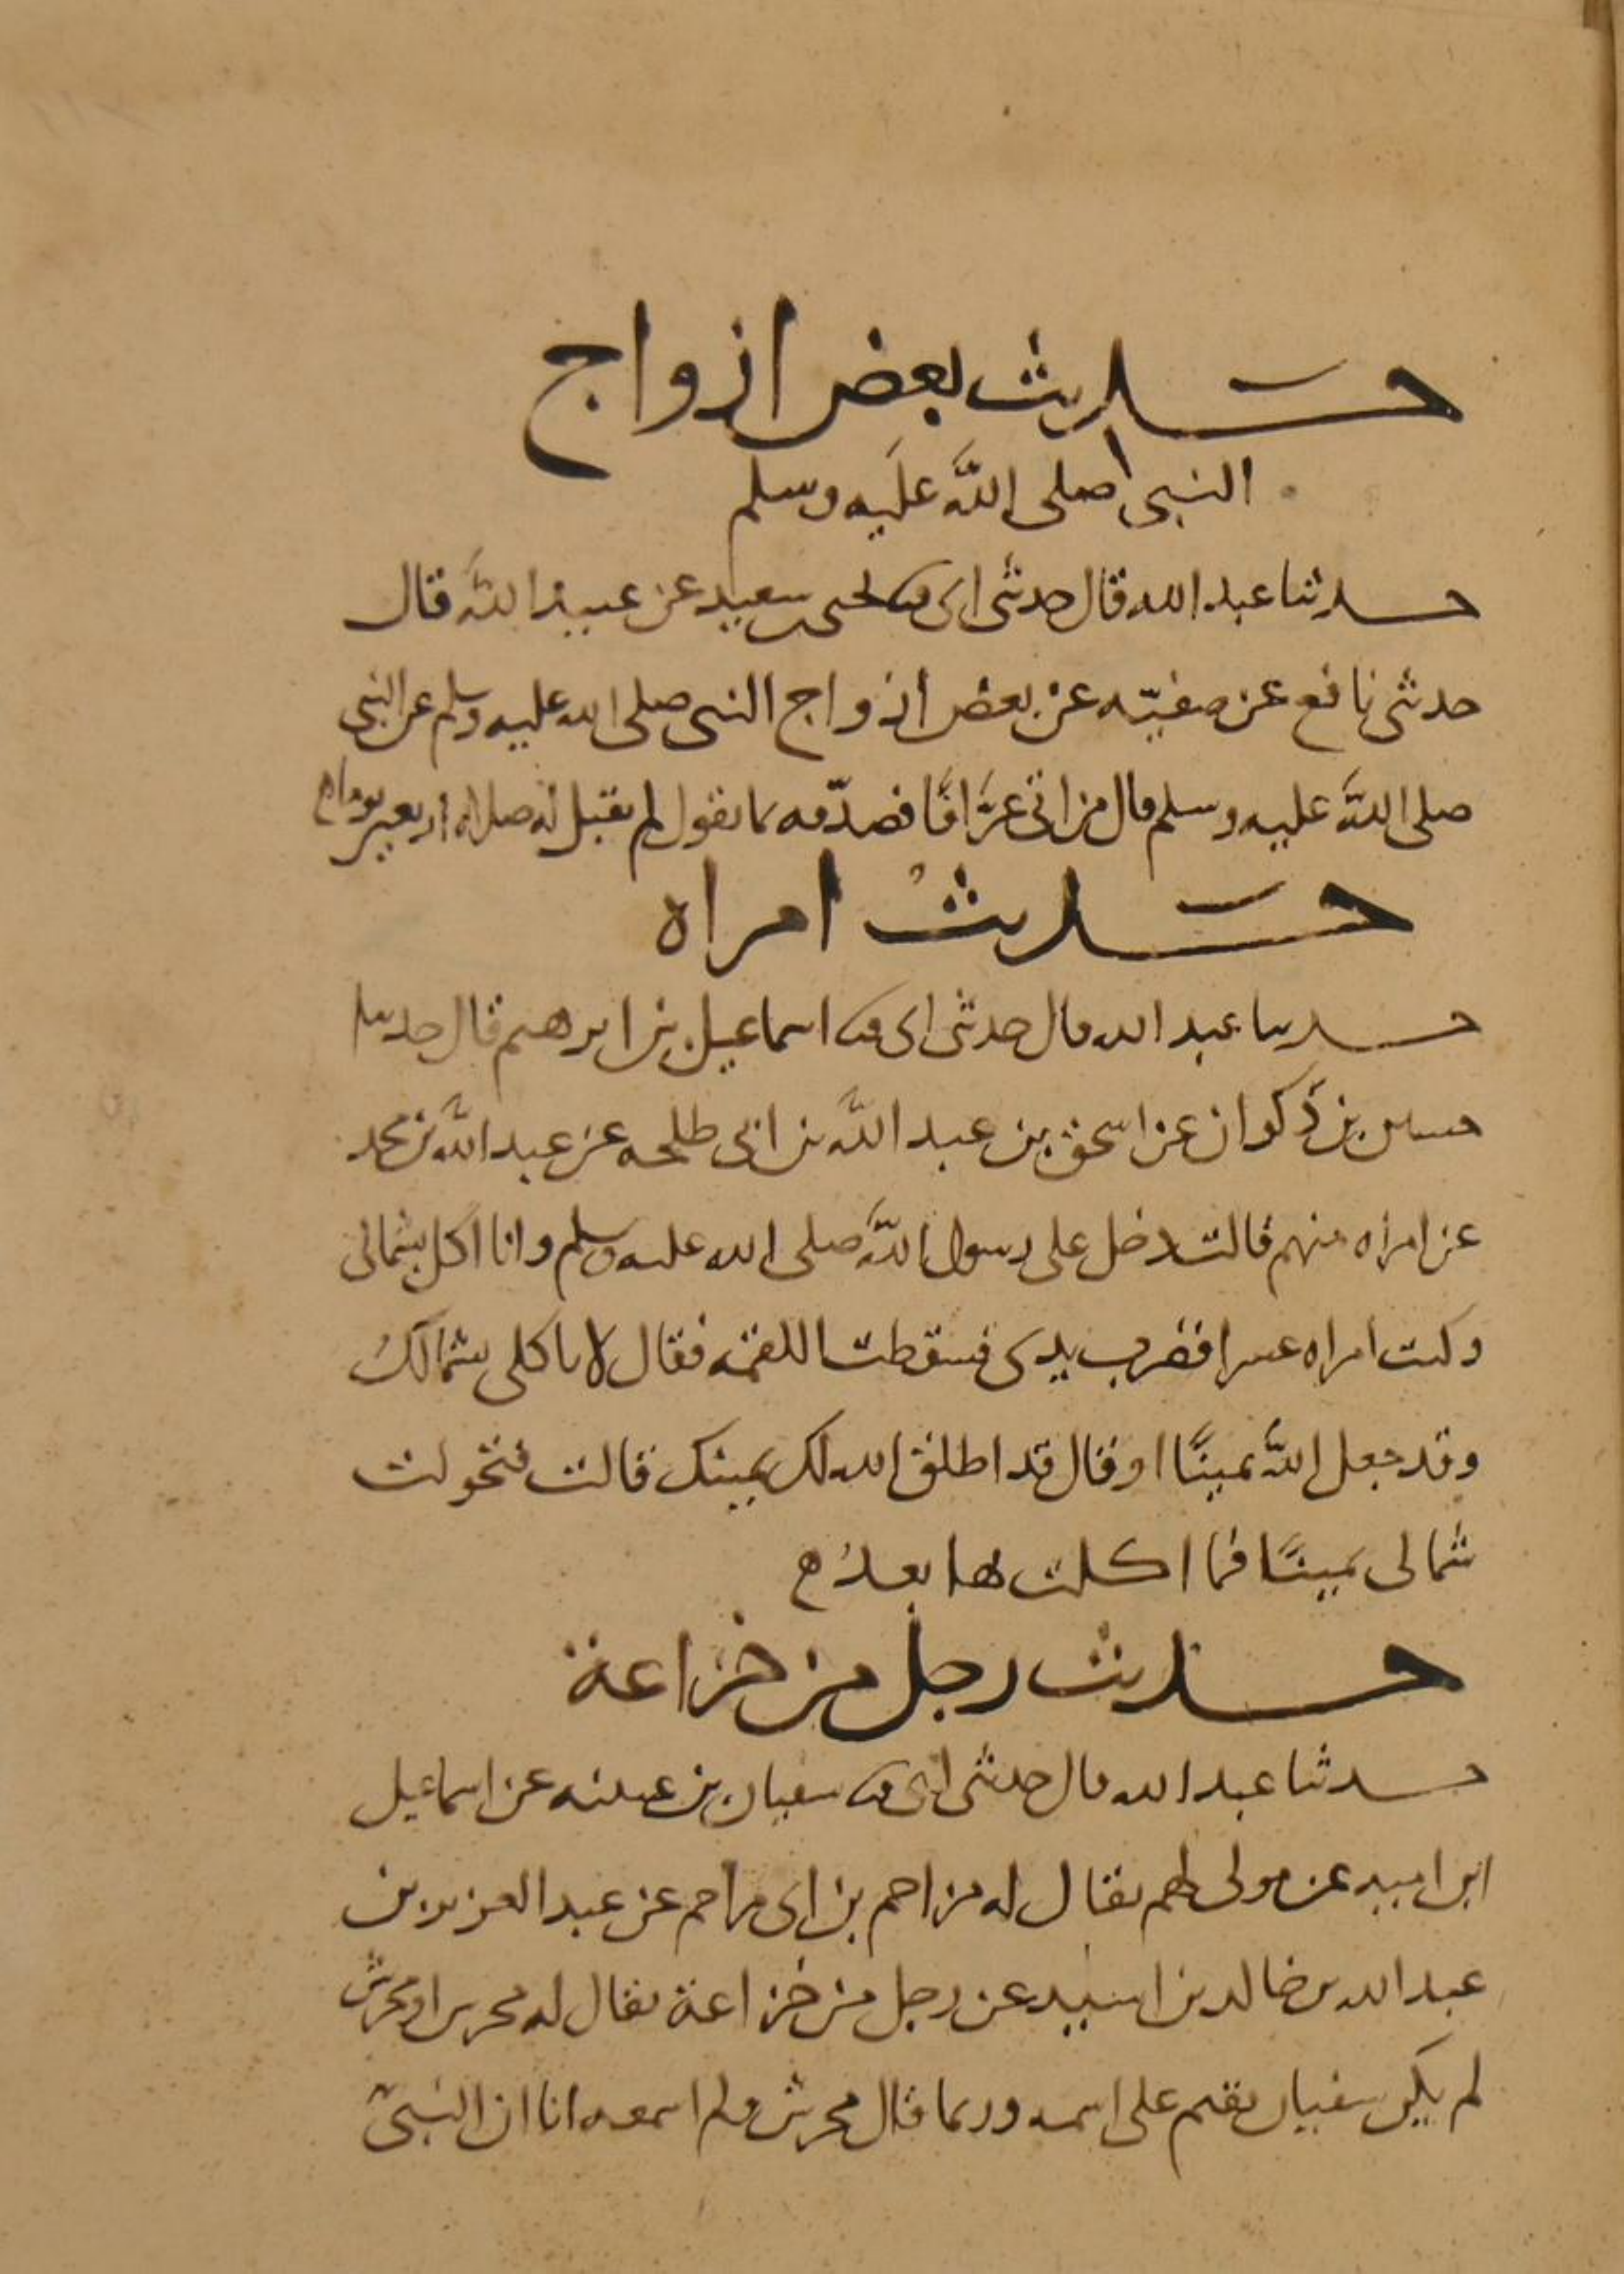 حديث بعض ازواج
النبي صلى الله عليه وسلم
حدثنا عبد الله قال حدثني ابي ثنا يحيى سعيد عن عبيد الله قال
حدثني نافع عن صفيّه عن بعض ازواج النبي صلى الله عليه وسلم عن النبي
صلى الله عليه وسلم قال من اتى عرَّافًا فصدّقه بما يقول لم يقبل له صلاه اربعين يوما
حديث امراه
حدثنا عبد الله قال حدثني ابي ثنا اسماعيل بن ابرهيم قال حدثنا
حسين بن ذكوان عن اسحق بن عبد الله بن ابي طلحه عن عبد الله بن محمد
عن امراه منهم قالت دخل على رسول الله صلى الله عليه وسلم وانا اكل بشمالي
وكنت امراه عسرا فضرب يدي فسقطت اللقمه فقال لا تاكلي بشمالك
وقد جعل الله يمينًا او قال قد اطلق الله لك يمينك قالت فتحولت
شمالي يمينًا فما اكلت بها بعدُ
حديث رجل من خزاعة
حدثنا عبد الله قال حدثني ابي ثنا سفيان بن عيينه عن اسماعيل
ابن اميه عن مولى لهم يقال له مزاحم بن ابي مزاحم عن عبد العزيز بن
عبد الله بن خالد بن اسيد عن رجل من خزاعة يقال له محرس او محرش
لم يكن سفيان يقيم على اسمه وربما قال محرش ولم اسمعه انا ان النبيّ